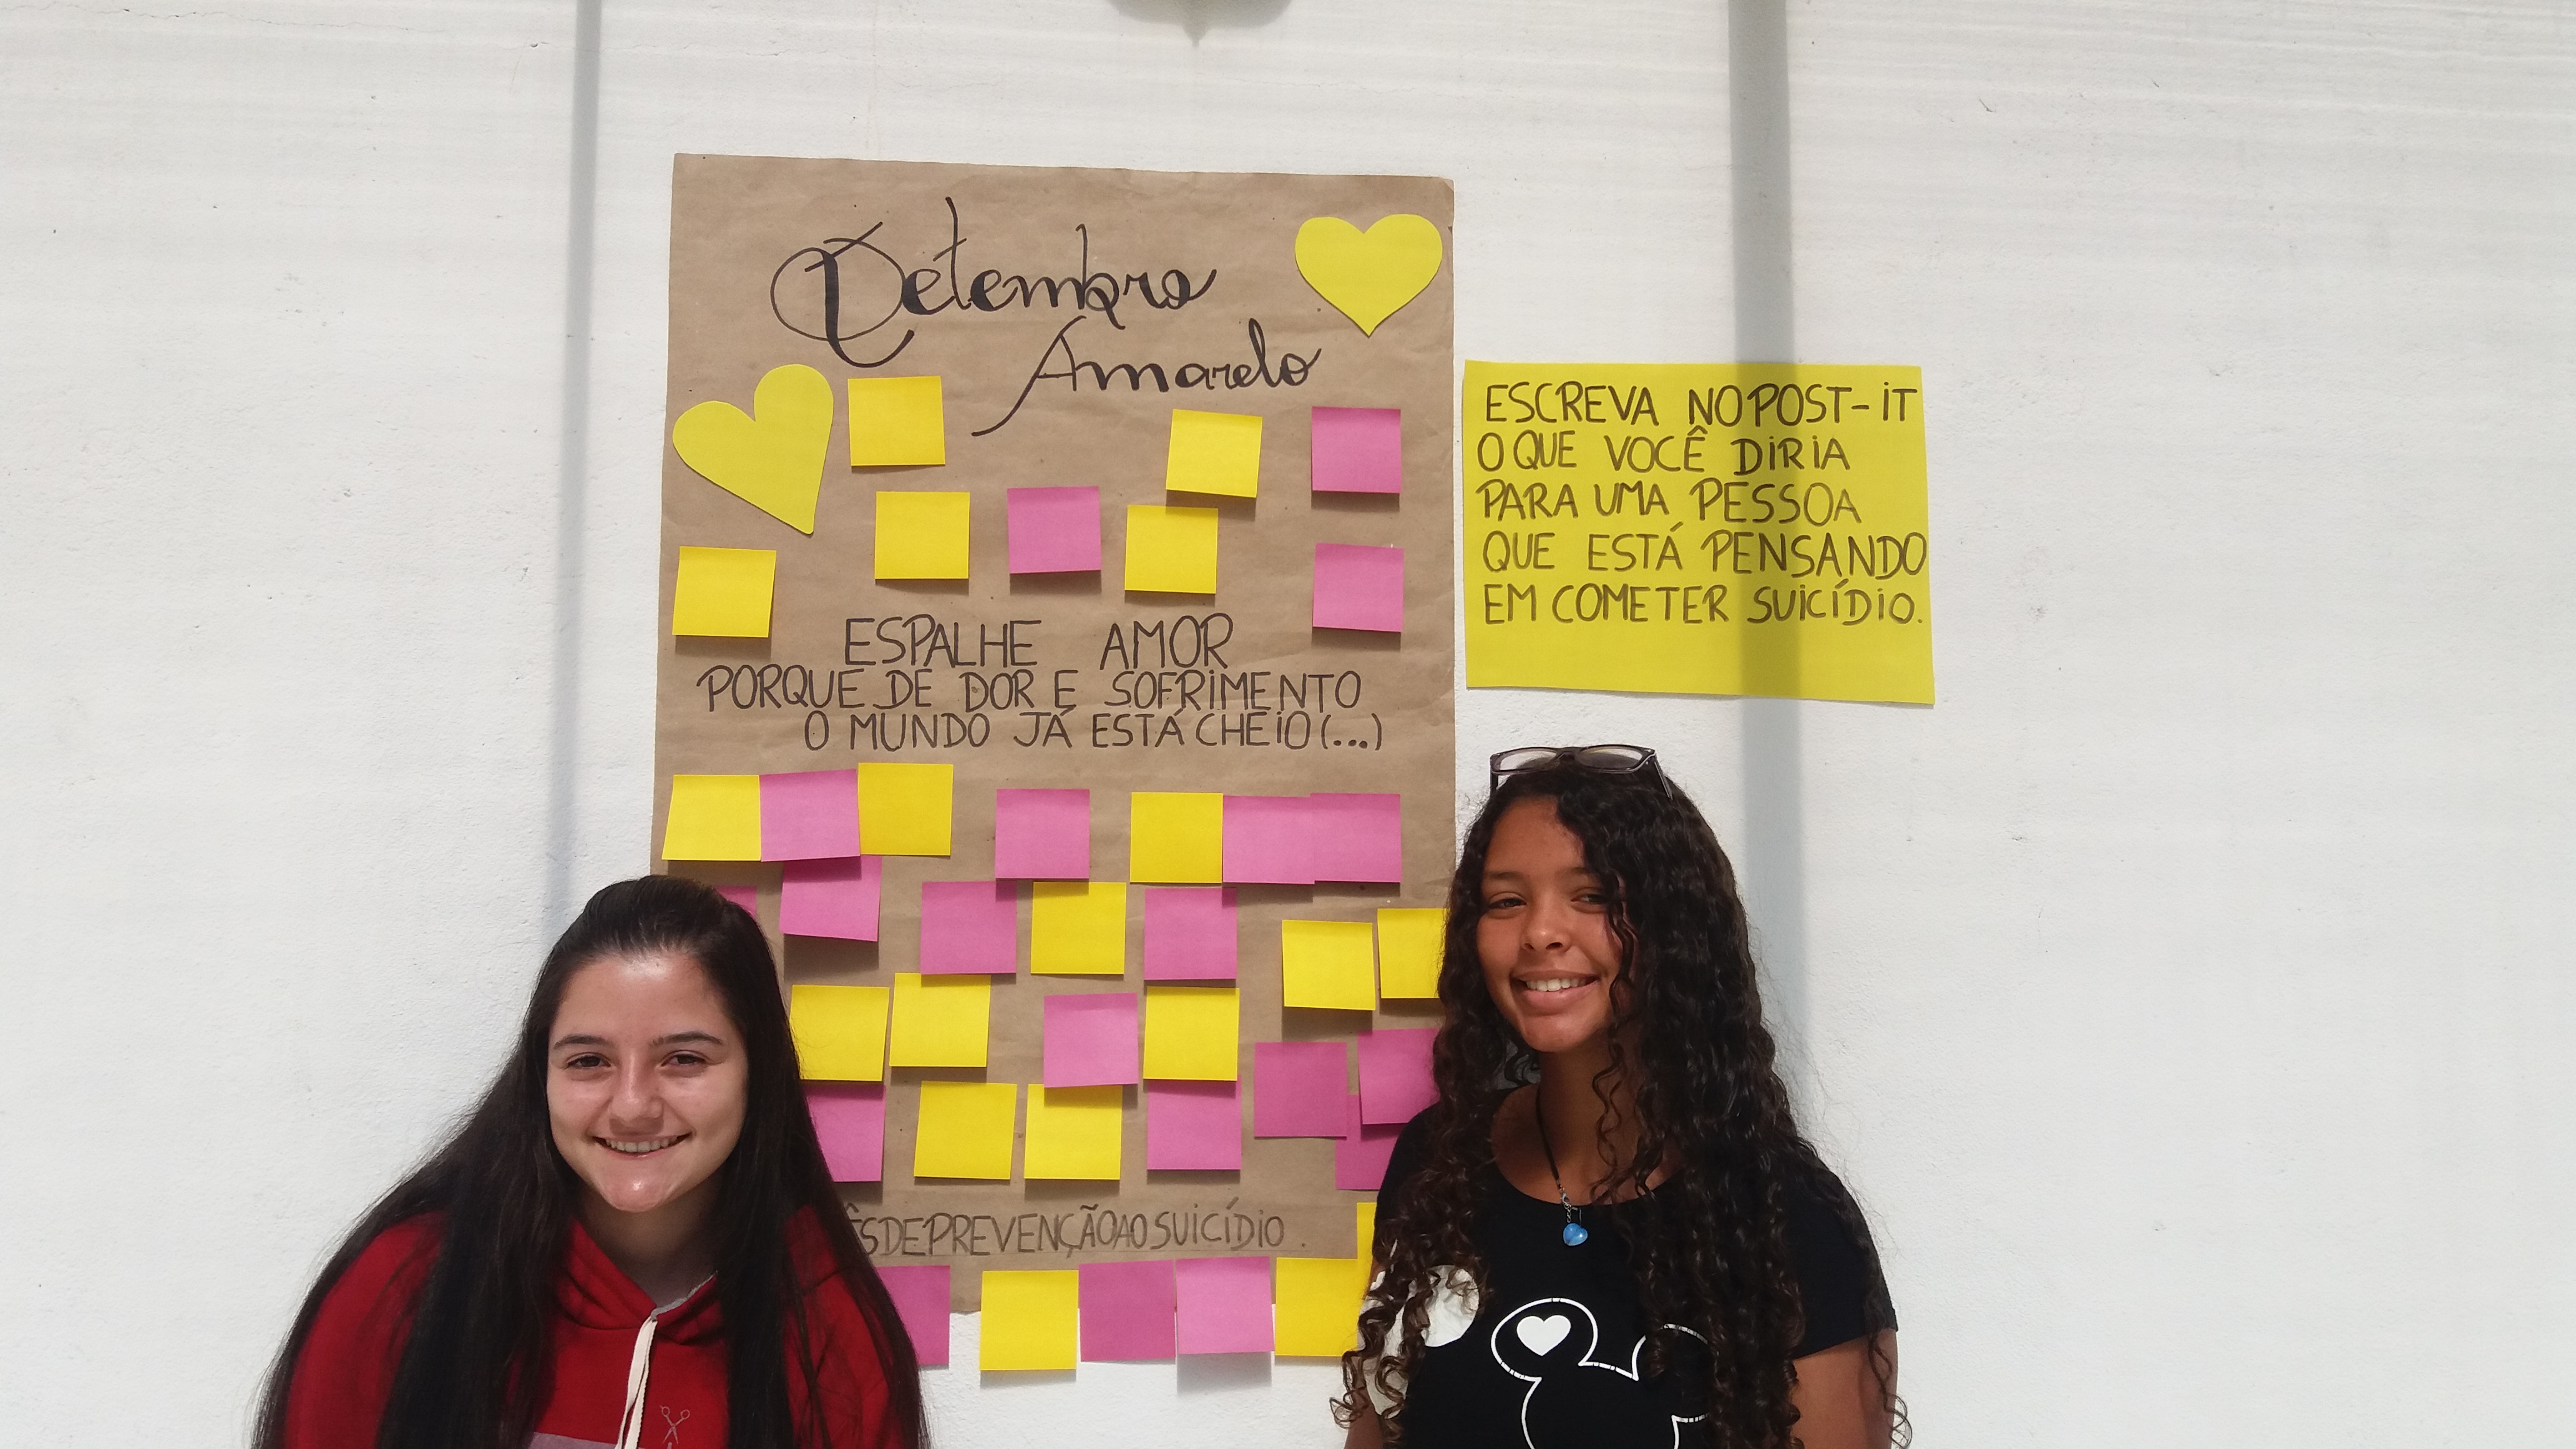 Setembro
Amarelo
ESPALHE AMOR
PORQUE DE DOR E SOFRIMENTO
O MUNDO JÁ ESTÁ CHEIO (...)
DE PREVENÇÃO AO SUICÍDIO.
ESCREVA NO POST-IT
O QUE VOCÊ DIRIA
PARA UMA PESSOA
QUE ESTÁ PENSANDO
EM COMETER SUICÍDIO.